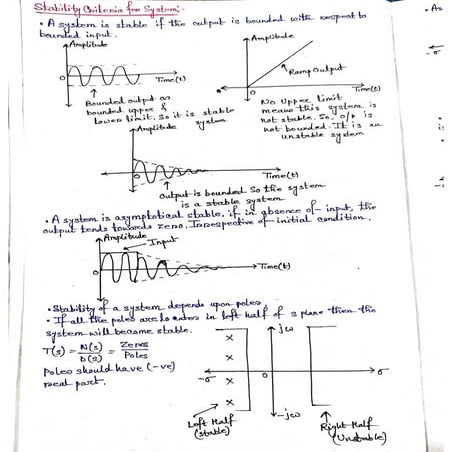 Stability Criteria for System:-
• A system is stable if the output is bounded with respect to
bounded input.
Amplitude
0
Time(t)
Bounded output as
bounded upper &
Lower limit. So it is stable
system
Amplitude
Ramp output
0
Time(t)
No Upper limit
means this system is
not stable. So, o/p is
not bounded. It is an
unstable system
Amplitude
0
Time(t)
Output is bounded so the system
is a stable system
• A system is asymptotical stable, if in absence of input, the
output tends towards zero. Irrespective of initial condition.
Amplitude
Input
0
Time(t)
• Stability of a system depends upon poles.
• If all the poles are located in left half of s plane then the
system will become stable.
T(s) = N(s)/D(s) = Zeros/Poles
Poles should have (-ve)
real part.
jω
x
x
x
x
-σ
0
σ
-jω
Left Half
(stable)
Right Half
(Unstable)
• As